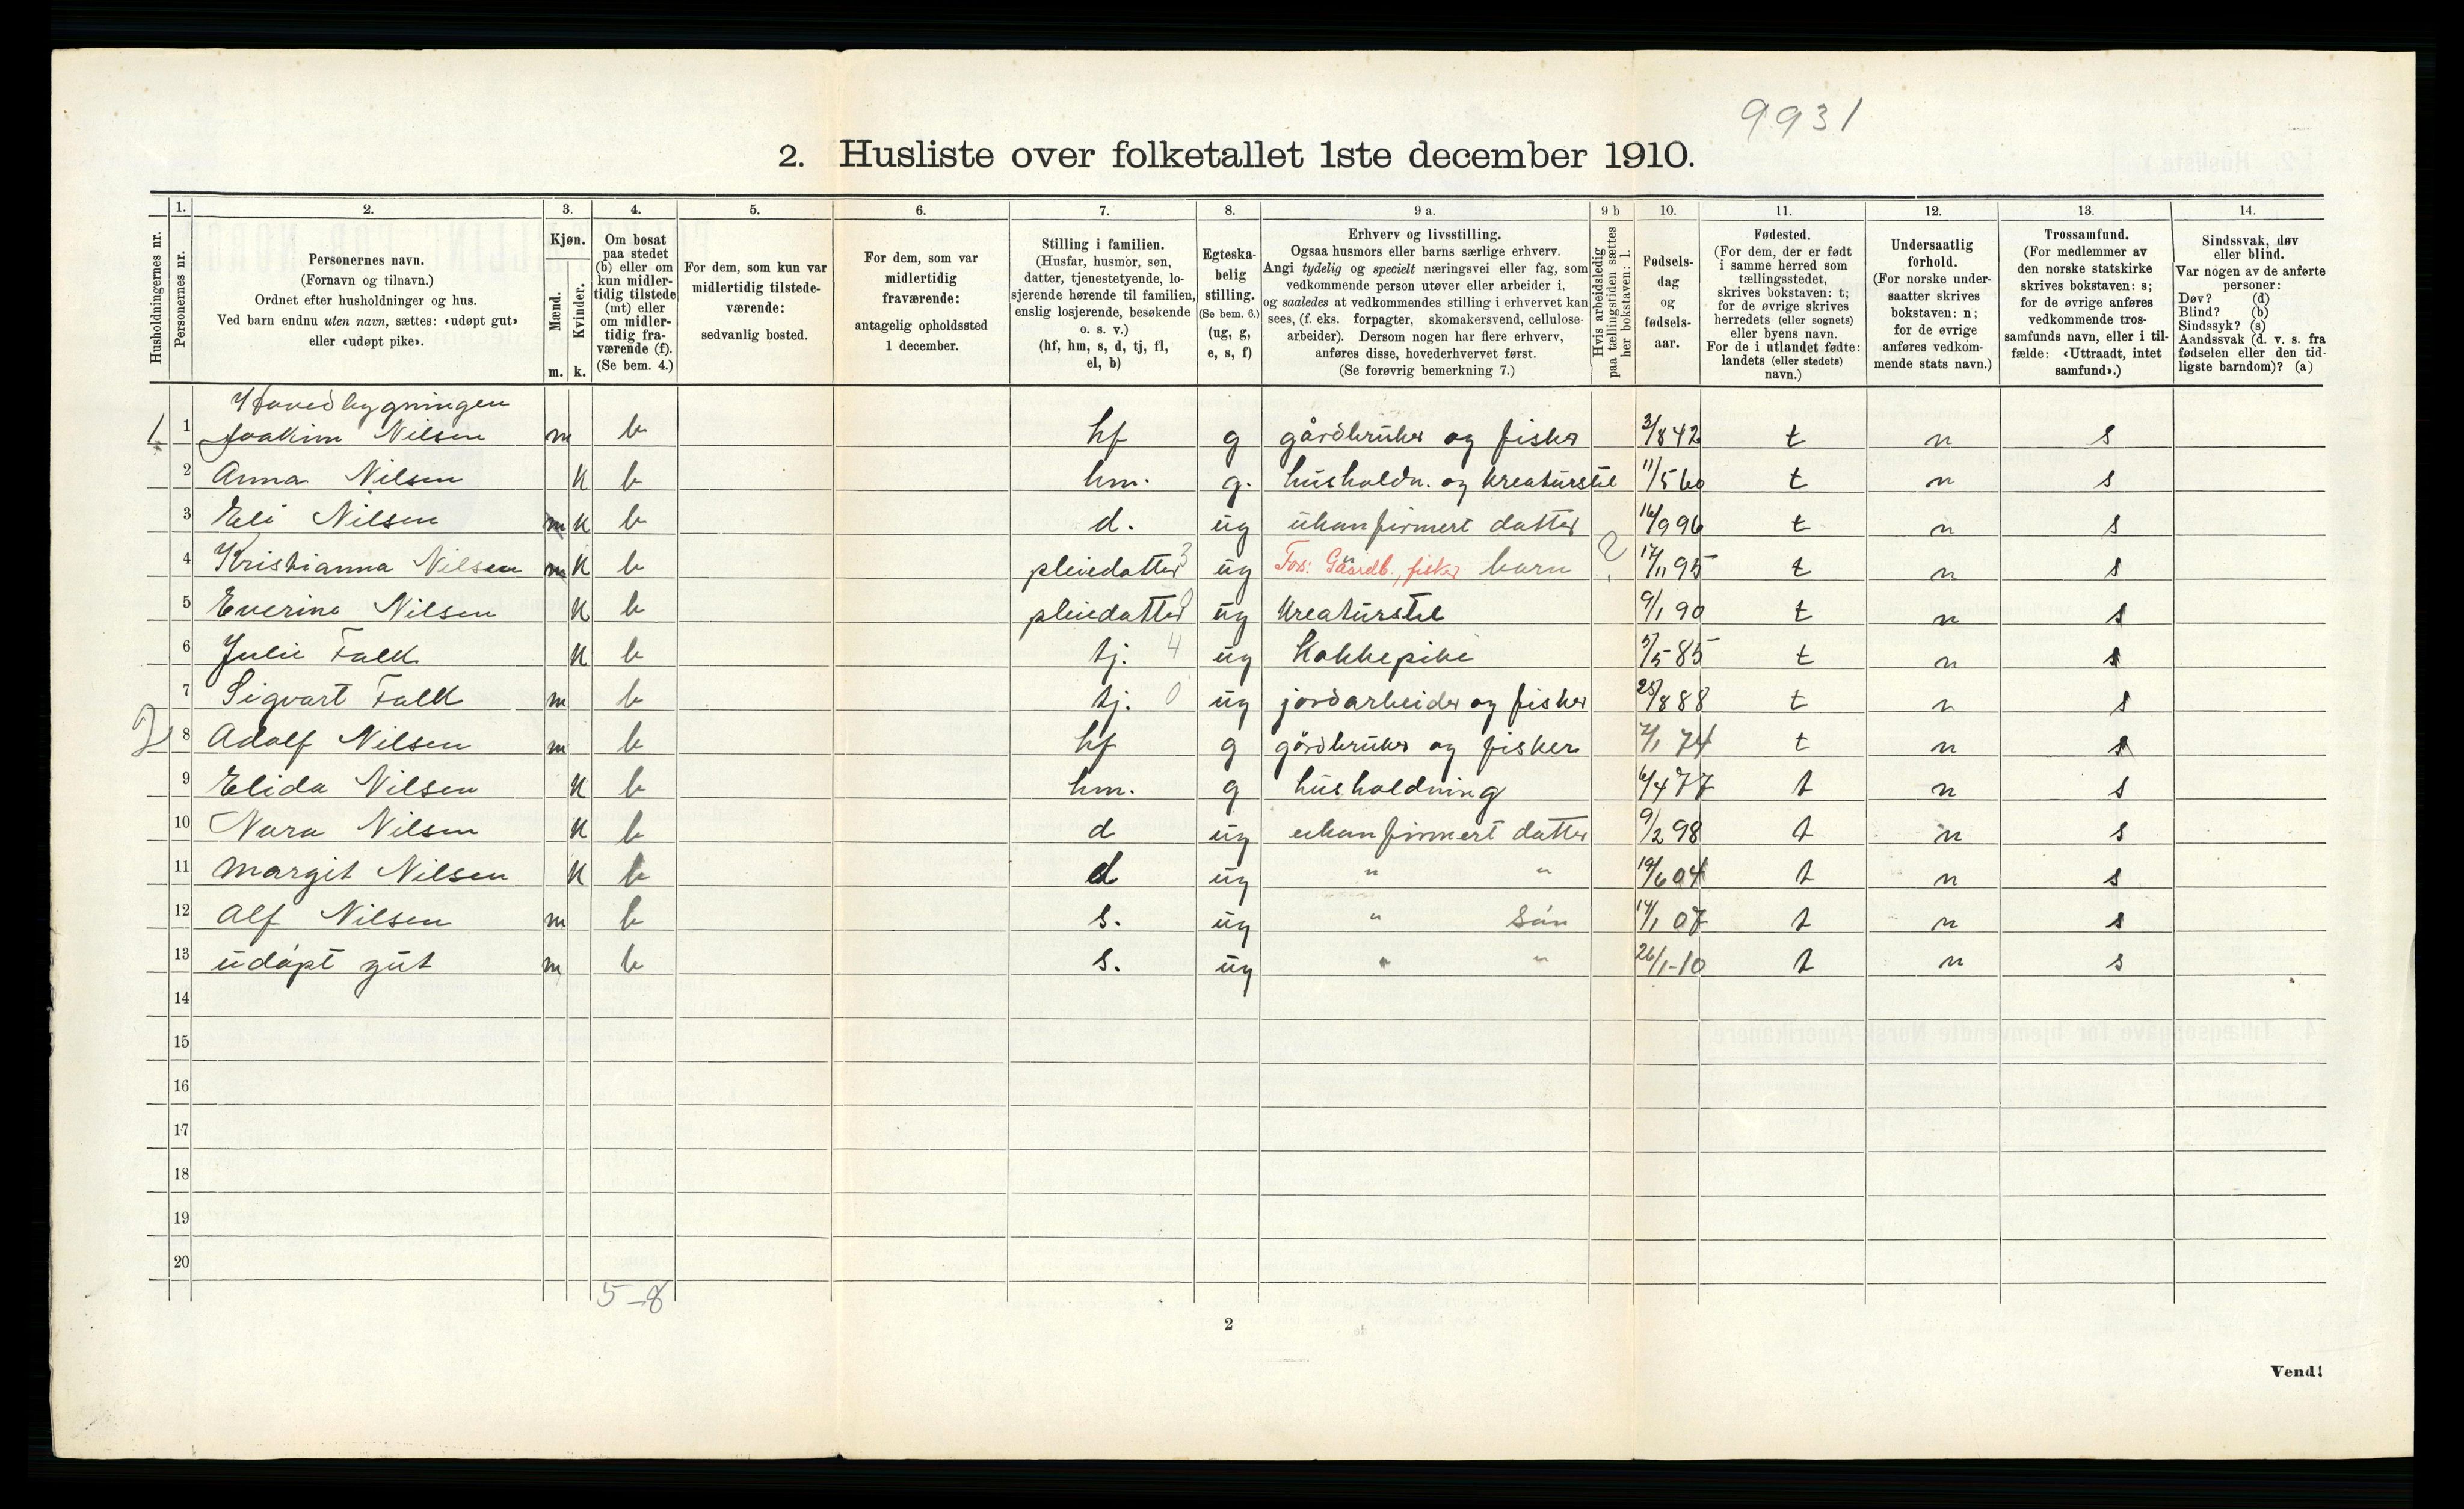 9931
2. Husliste over folketallet 1ste december 1910.
Husholdningernes nr.
1. Personernes nr.
2. Personernes navn. (Fornavn og tilnavn.) Ordnet efter husholdninger og hus. Ved barn endnu uten navn, sættes: «udøpt gut» eller «udøpt pike».
3. Kjøn. Mænd. m. Kvinder. k.
4. Om bosat paa stedet (b) eller om kun midlertidig tilstede (mt) eller om midlertidig fraværende (f). (Se bem. 4.)
5. For dem, som kun var midlertidig tilstedeværende: sedvanlig bosted.
6. For dem, som var midlertidig fraværende: antagelig opholdssted 1 december.
7. Stilling i familien. (Husfar, husmor, søn, datter, tjenestetyende, losjerende hørende til familien, enslig losjerende, besøkende o. s. v.) (hf, hm, s, d, tj, fl, el, b)
8. Egteskabelig stilling. (Se bem. 6.) (ug, g, e, s, f)
9 a. Erhverv og livsstilling. Ogsaa husmors eller barns særlige erhverv. Angi tydelig og specielt næringsvei eller fag, som vedkommende person utøver eller arbeider i, og saaledes at vedkommendes stilling i erhvervet kan sees, (f. eks. forpagter, skomakersvend, cellulosearbeider). Dersom nogen har flere erhverv, anføres disse, hovederhvervet først. (Se forøvrig bemerkning 7.)
9 b Hvis arbeidsledig paa tællingstiden sættes her bokstaven: l.
10. Fødselsdag og fødselsaar.
11. Fødested. (For dem, der er født i samme herred som tællingsstedet, skrives bokstaven: t; for de øvrige skrives herredets (eller sognets) eller byens navn. For de i utlandet fødte: landets (eller stedets) navn.)
12. Undersaatlig forhold. (For norske undersaatter skrives bokstaven: n; for de øvrige anføres vedkommende stats navn.)
13. Trossamfund. (For medlemmer av den norske statskirke skrives bokstaven: s; for de øvrige anføres vedkommende trossamfunds navn, eller i tilfælde: «Uttraadt, intet samfund».)
14. Sindssvak, døv eller blind. Var nogen av de anførte personer: Døv? (d) Blind? (b) Sindssyk? (s) Aandssvak (d. v. s. fra fødselen eller den tidligste barndom)? (a)
Hovedbygningen
1 1 Joakim Nilsen m b hf g gårdbruker og fisker 3/8 42 t n s
2 Anna Nilsen k b hm. g. husholdn. og kreaturstel 11/5 60 t n s
3 Eli Nilsen m k b d. ug ukonfirmert datter 16/9 96 t n s
4 Kristianna Nilsen m k b pleiedatter 3 ug Fos: Gaardb., fisker barn 17/11 95 t n s
5 Everine Nilsen k b pleiedatter 0 ug kreaturstel 9/1 90 t n s
6 Julie Falk k b tj. 4 ug Kokkepike 5/5 85 t n s
7 Sigvart Falk m b tj. 0 ug jordarbeider og fisker 25/8 88 t n s
2 8 Adolf Nilsen m b hf g gårdbruker og fisker 7/1 74 t n s
9 Elida Nilsen k b hm. g husholdning 6/4 77 t n s
10 Nora Nilsen k b d ug ukonfirmert datter 9/2 98 t n s
11 Margit Nilsen k b d ug " " 19/6 04 t n s
12 Alf Nilsen m b s. ug " søn 14/1 07 t n s
13 udøpt gut m b s. ug " " 26/1-10 t n s
14
15
16
17
18
19
20
5-8
2
Vend!